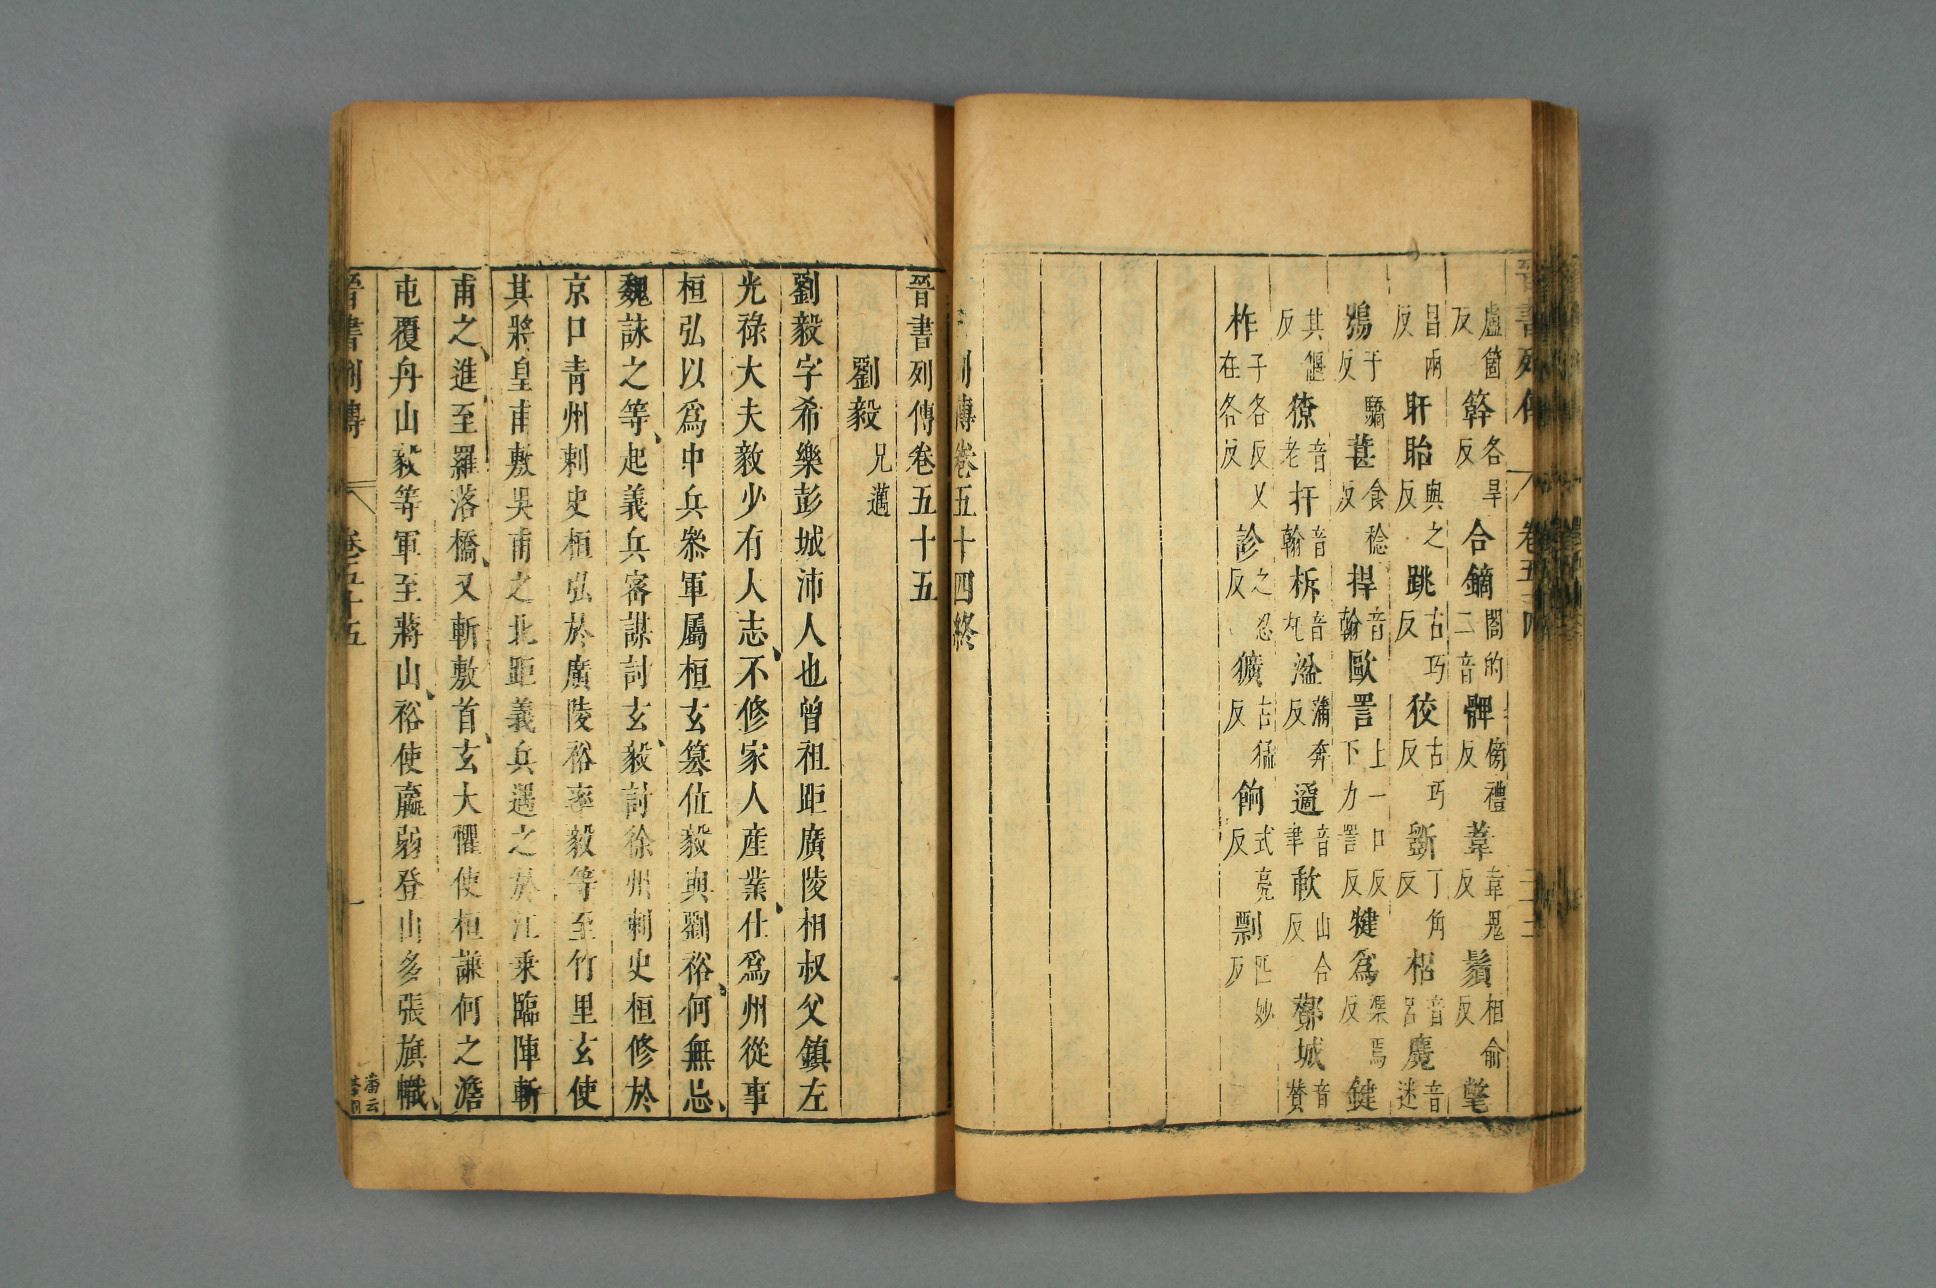 晉書列傳 卷五十四 三十三
盧箇反 簳各旱反 合鏑閤的二音 髀傍禮反 葦韋鬼反 鬚相俞反 氅
昌兩反 盱眙與之反 跳古巧反 狡古巧反 斵丁角反 梠音呂 麑音迷
鴞于驕反 葚食稔反 捍音翰 歐詈上一口反下力詈反 犍爲渠焉反 鍵
其偃反 獠音老 扞音翰 柝音乇 湓蒲奔反 逼音聿 㰱山合反 酇城音贊
柞子各反又在各反 診之忍反 獷古猛反 餉式亮反 剽匹妙反
列傳卷五十四終
晉書列傳卷五十五
劉毅 兄邁
劉毅字希樂彭城沛人也曾祖距廣陵相叔父鎮左
光祿大夫毅少有大志、不修家人産業、仕爲州從事
桓弘以爲中兵叅軍屬桓玄篡位毅與劉裕、何無忌、
魏詠之等、起義兵密謀討玄、毅討徐州刺史桓修於
京口青州刺史桓弘於廣陵裕率毅等至竹里玄使
其將皇甫敷吳甫之北距義兵遇之於江乘臨陣斬
甫之、進至羅落橋、又斬敷首、玄大懼使桓謙何之澹
屯覆舟山毅等軍至蔣山、裕使羸弱登山多張旗幟、
晉書列傳 卷五十五 一